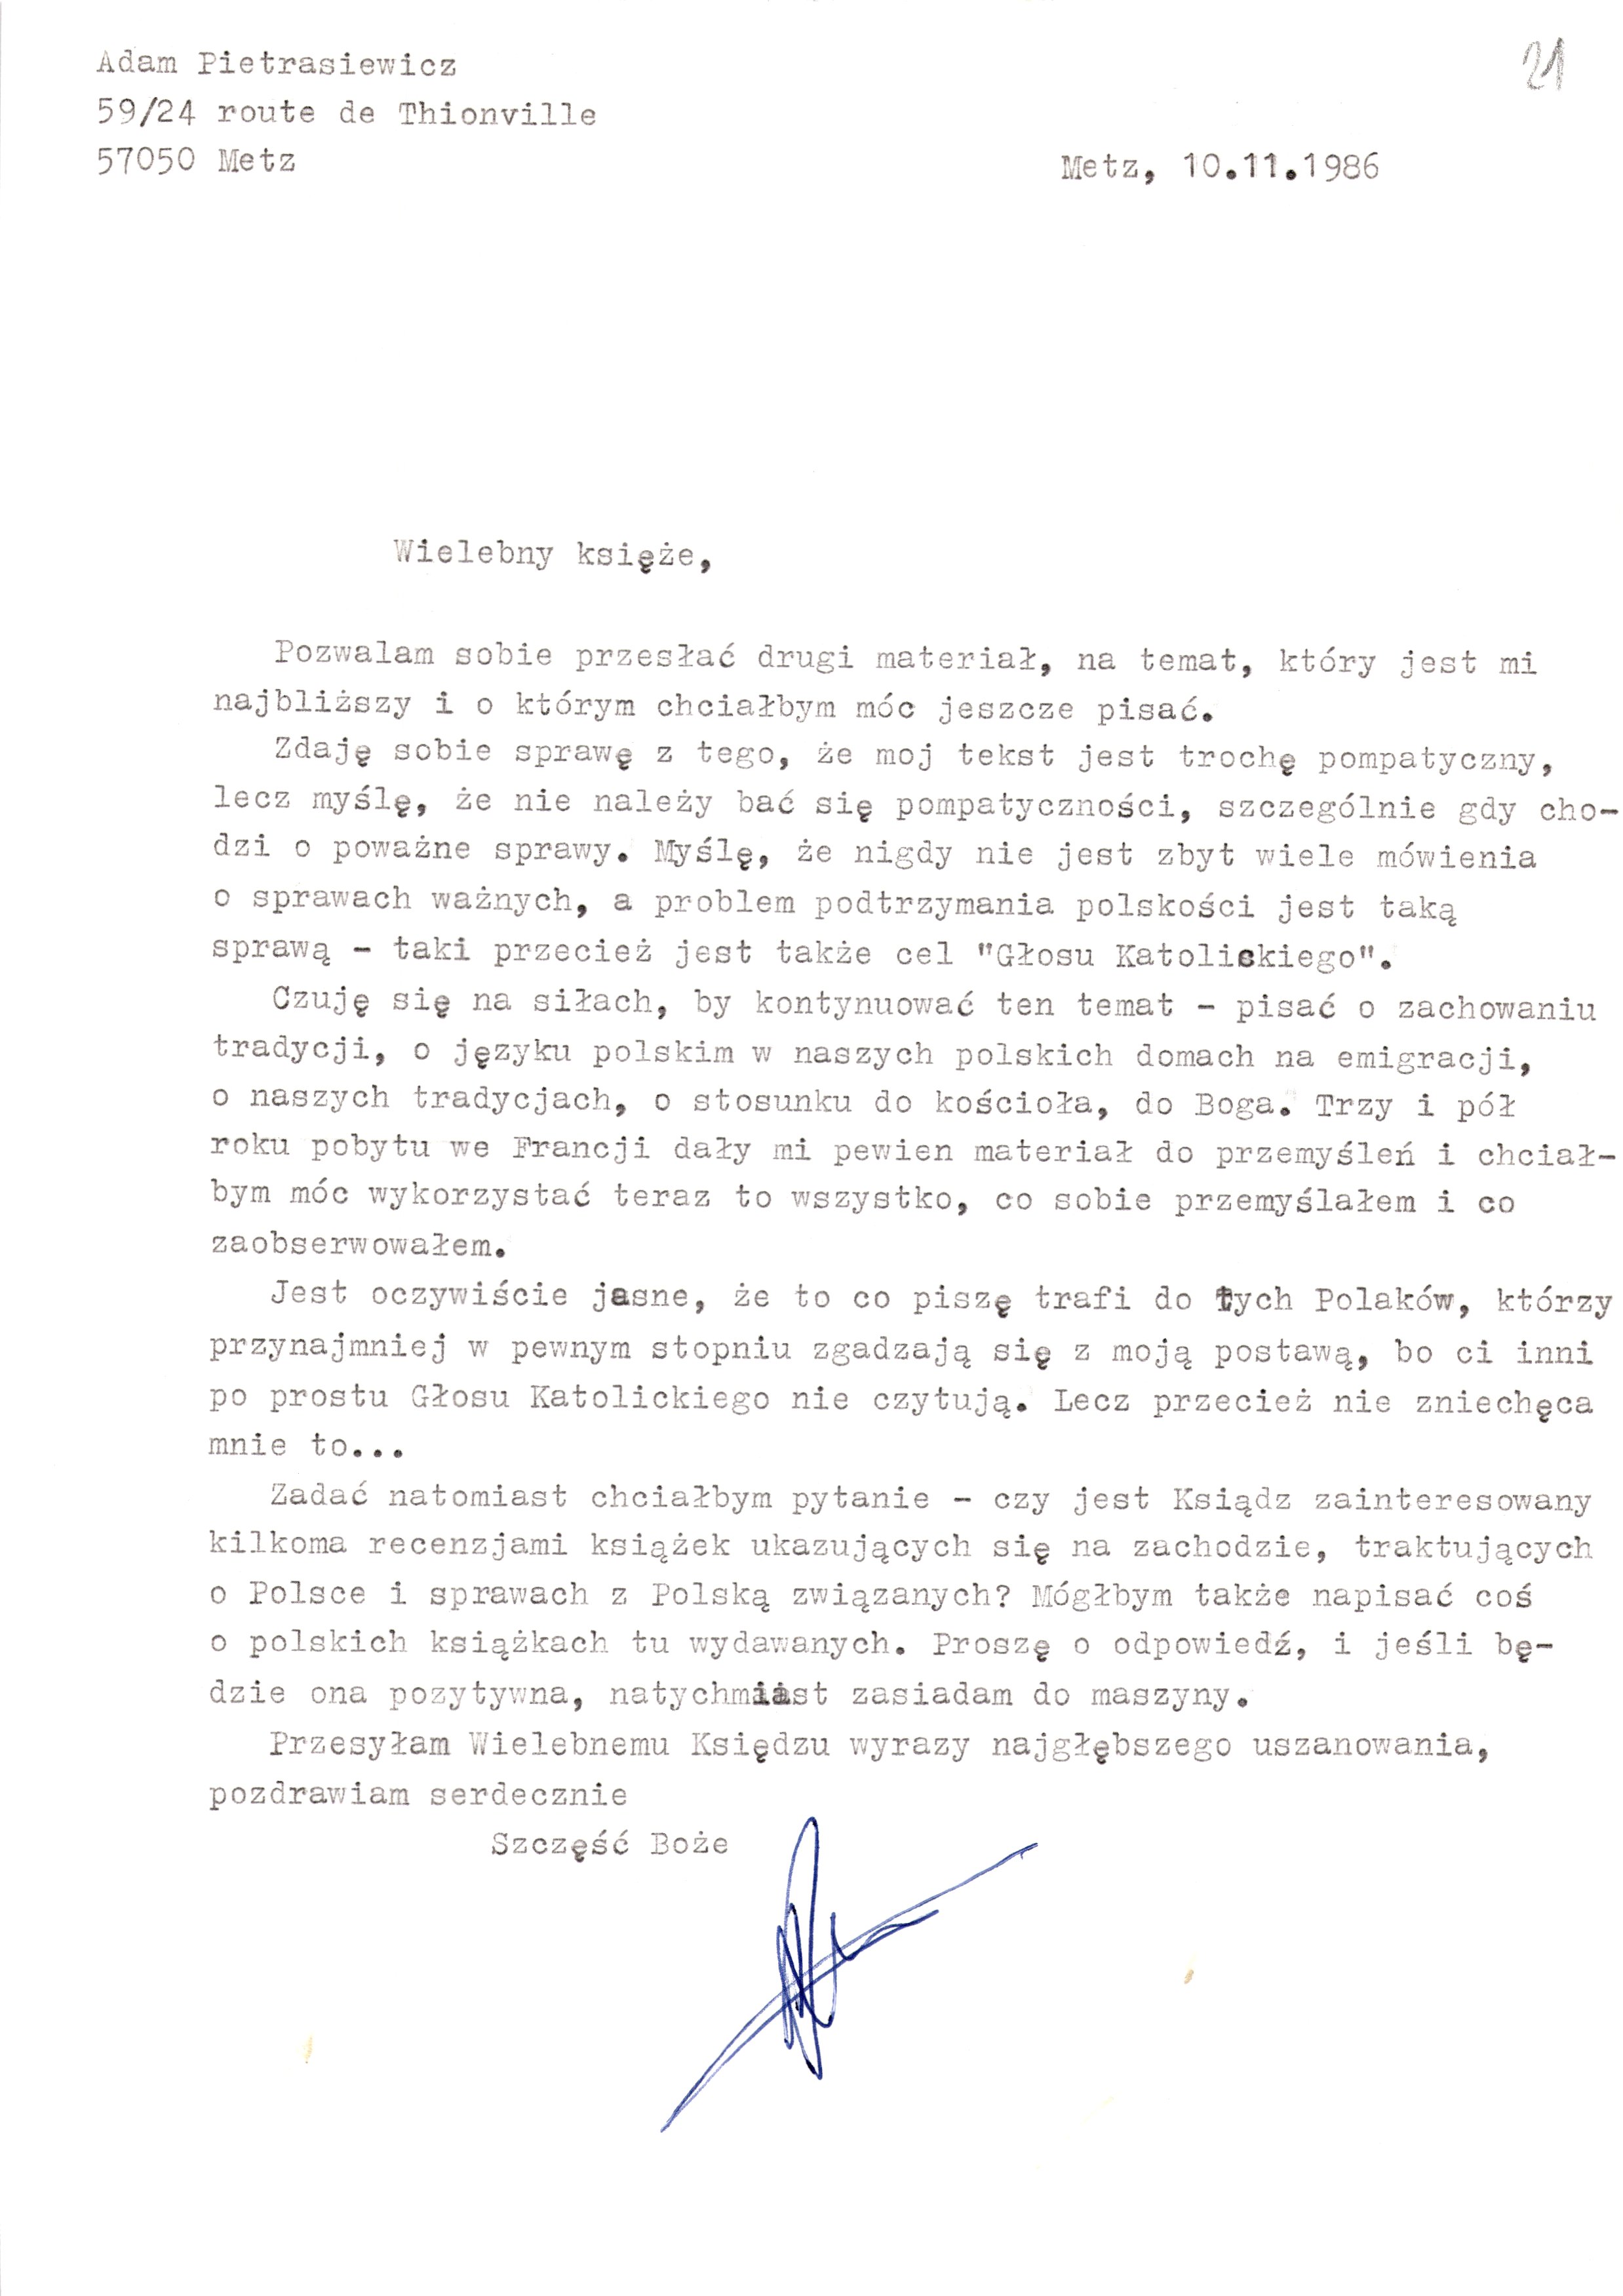 Adam Pietrasiewicz
21
59/24 route de Thionville
57050 Metz
Metz, 10.11.1986
Wielebny księże,
Pozwalam sobie przesłać drugi materiał, na temat, który jest mi
najbliższy i o którym chciałbym móc jeszcze pisać.
Zdaję sobie sprawę z tego, że moj tekst jest trochę pompatyczny,
lecz myślę, że nie należy bać się pompatyczności, szczególnie gdy cho-
dzi o poważne sprawy. Myślę, że nigdy nie jest zbyt wiele mówienia
o sprawach ważnych, a problem podtrzymania polskości jest taką
sprawą - taki przecież jest także cel "Głosu Katolickiego".
Czuję się na siłach, by kontynuować ten temat - pisać o zachowaniu
tradycji, o języku polskim w naszych polskich domach na emigracji,
o naszych tradycjach, o stosunku do kościoła, do Boga. Trzy i pół
roku pobytu we Francji dały mi pewien materiał do przemyśleń i chciał-
bym móc wykorzystać teraz to wszystko, co sobie przemyślałem i co
zaobserwowałem.
Jest oczywiście jasne, że to co piszę trafi do tych Polaków, którzy
przynajmniej w pewnym stopniu zgadzają się z moją postawą, bo ci inni
po prostu Głosu Katolickiego nie czytują. Lecz przecież nie zniechęca
mnie to...
Zadać natomiast chciałbym pytanie - czy jest Ksiądz zainteresowany
kilkoma recenzjami książek ukazujących się na zachodzie, traktujących
o Polsce i sprawach z Polską związanych? Mógłbym także napisać coś
o polskich książkach tu wydawanych. Proszę o odpowiedź, i jeśli bę-
dzie ona pozytywna, natychmiast zasiadam do maszyny.
Przesyłam Wielebnemu Księdzu wyrazy najgłębszego uszanowania,
pozdrawiam serdecznie
Szczęść Boże